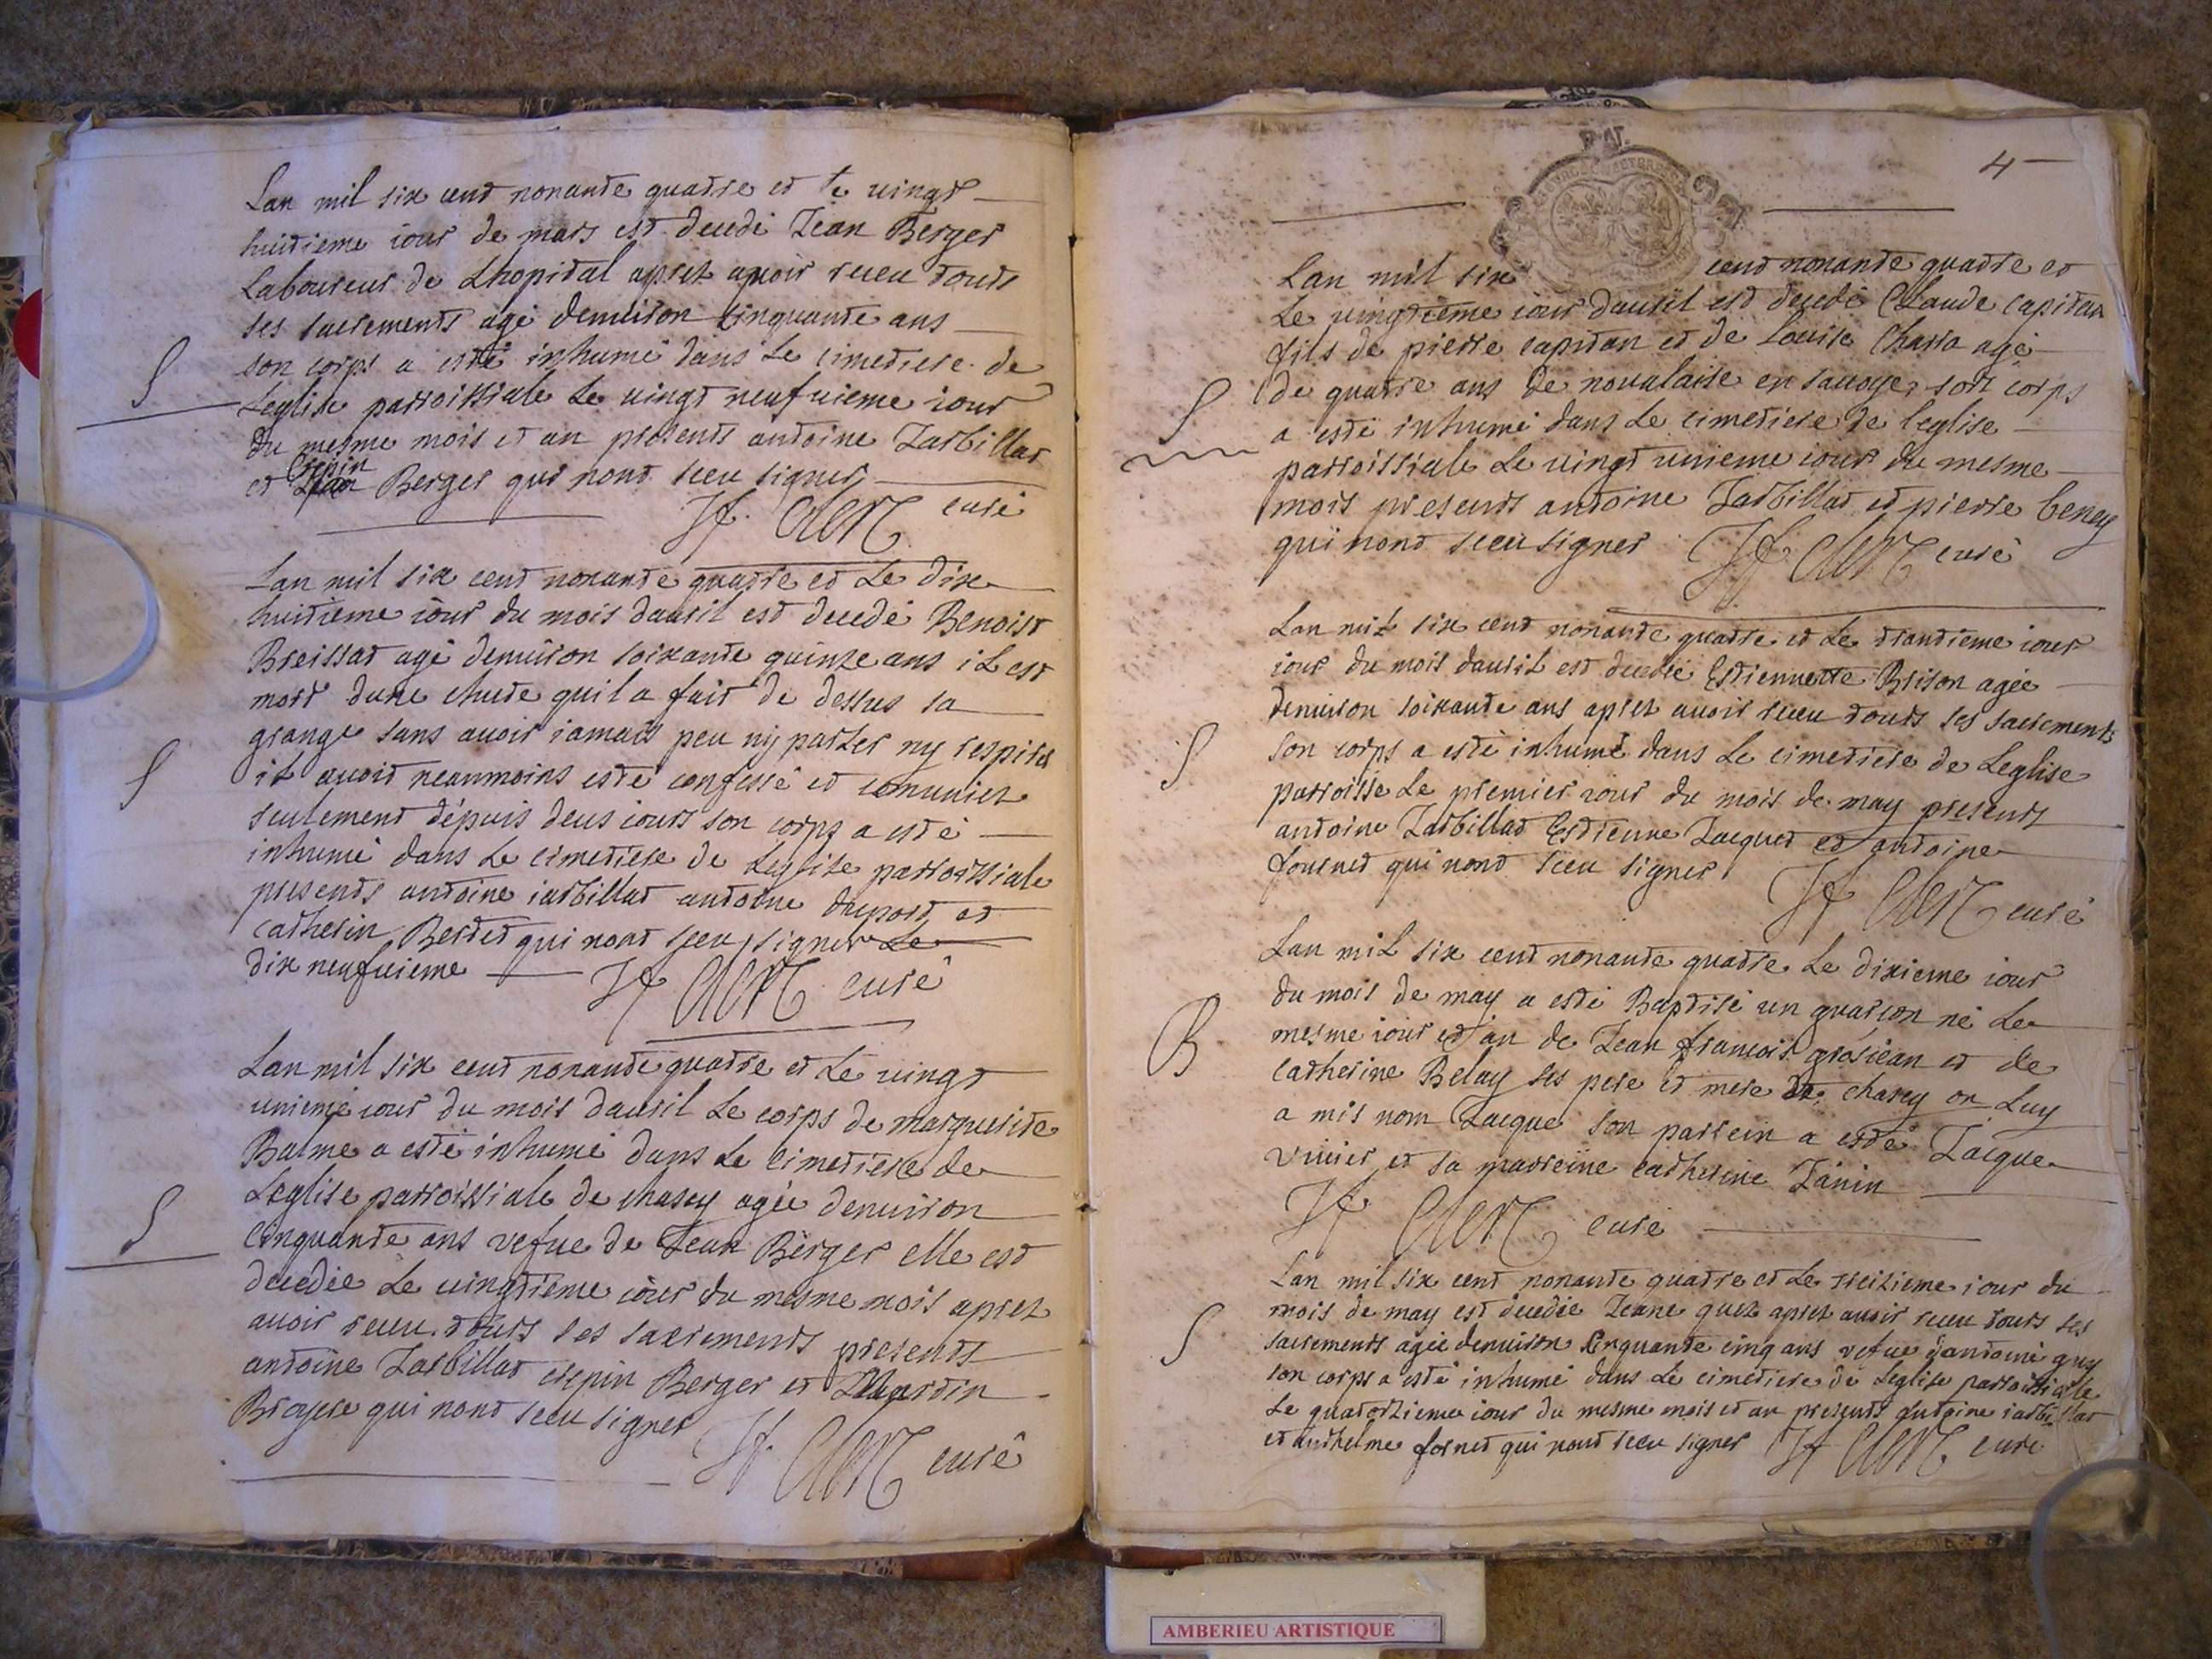 Lan mil six cent nonante quatre et le vingt
huitieme iour de mars est decedé Iean Berger
Laboureur de Lhopital aprez avoir receu touts
ses sacrements agé denuiron cinquante ans
son corps a esté inhumé dans Le cimetiere de
S Leglise parroissiale Le uingt neufuieme iour
du mesme mois et an presents antoine Iarbillat
Crepin
et Berger qui nont sceu signer
If. Clerc curé
Lan mil six cent nonante quatre et Le dix
huitieme iour du mois dauril est decedé Benoist
Breissat agé denuiron soixante quinze ans iL est
mort dune chute quil a fait de dessus sa
grange sans auoir iamais peu ny parler ny respirer
S iL auoit neanmoins esté confessé et comuniez
seulement dépuis deus iours son corps a esté
inhumé dans Le cimetiere de Leglise parroissiale
presents antoine iarbillat antoine duport et
catherin Bertet qui nont sceu signer Le
dix neufuieme If Clerc curé
Lan mil six cent nonante quatre et Le uingt
unieme iour du mois dauril Le corps de marguerite
Balme a esté inhumé dans Le cimetiere de
Leglise parroissiale de chasey agée denuiron
S Cinquante ans vefue de Iean Berger elle est
decedée Le uingtieme iour du mesme mois aprez
auoir receu touts ses sacrements presents
antoine Iarbillat crepin Berger et
Brayere qui nont sceu signer
If. Clerc curé
4
Lan mil six cent nonante quatre et
Le uingtieme iour dauril est decedé Claude capitan
fils de pierre capitan et de Louise Charra agé
S de quatre ans de noualaise en sauoye, son corps
a esté inhumé dans Le cimetiere de leglise
parroissiale Le uingt unieme iour du mesme
mois presents antoine Iarbillat et pierre beney
qui nont sceu signer If Clerc curé
Lan mil six cent nonante quatre et Le trantieme iour
iour du mois dauril est decedée Estiennette Brison agée
denuiron soixante ans aprez auoir receu touts ses sacrements
S son corps a esté inhumé dans Le cimetiere de Leglise
parroisse Le premier iour du mois de may presents
antoine Iarbillat Estienne Iacquet et antoine
fournet qui nont sceu signer If Clerc curé
Lan miL six cent nonante quatre Le dixieme iour
du mois de may a esté Baptisé un guarçon né Le
B mesme iour et an de Iean francois grosiean et de
catherine Belay ses pere et mere de chasey on Luy
a mis nom Iacque son parrein a esté Iacque
viuier et sa marreine catherine Ianin
If Clerc curé
Lan mil six cent nonante quatre et Le treizieme iour du
mois de may est decedée Ieane guez aprez auoir receu touts ses
S sacrements agée denuiron cinquante cinq ans vefue dantoine guy
son corps a esté inhumé dans Le cimetiere de Leglise parroissiale
Le quatorzieme iour du mesme mois et an presents antoine iarbillat
et anthelme fornet qui nont sceu signer If Clerc curé
AMBERIEU ARTISTIQUE